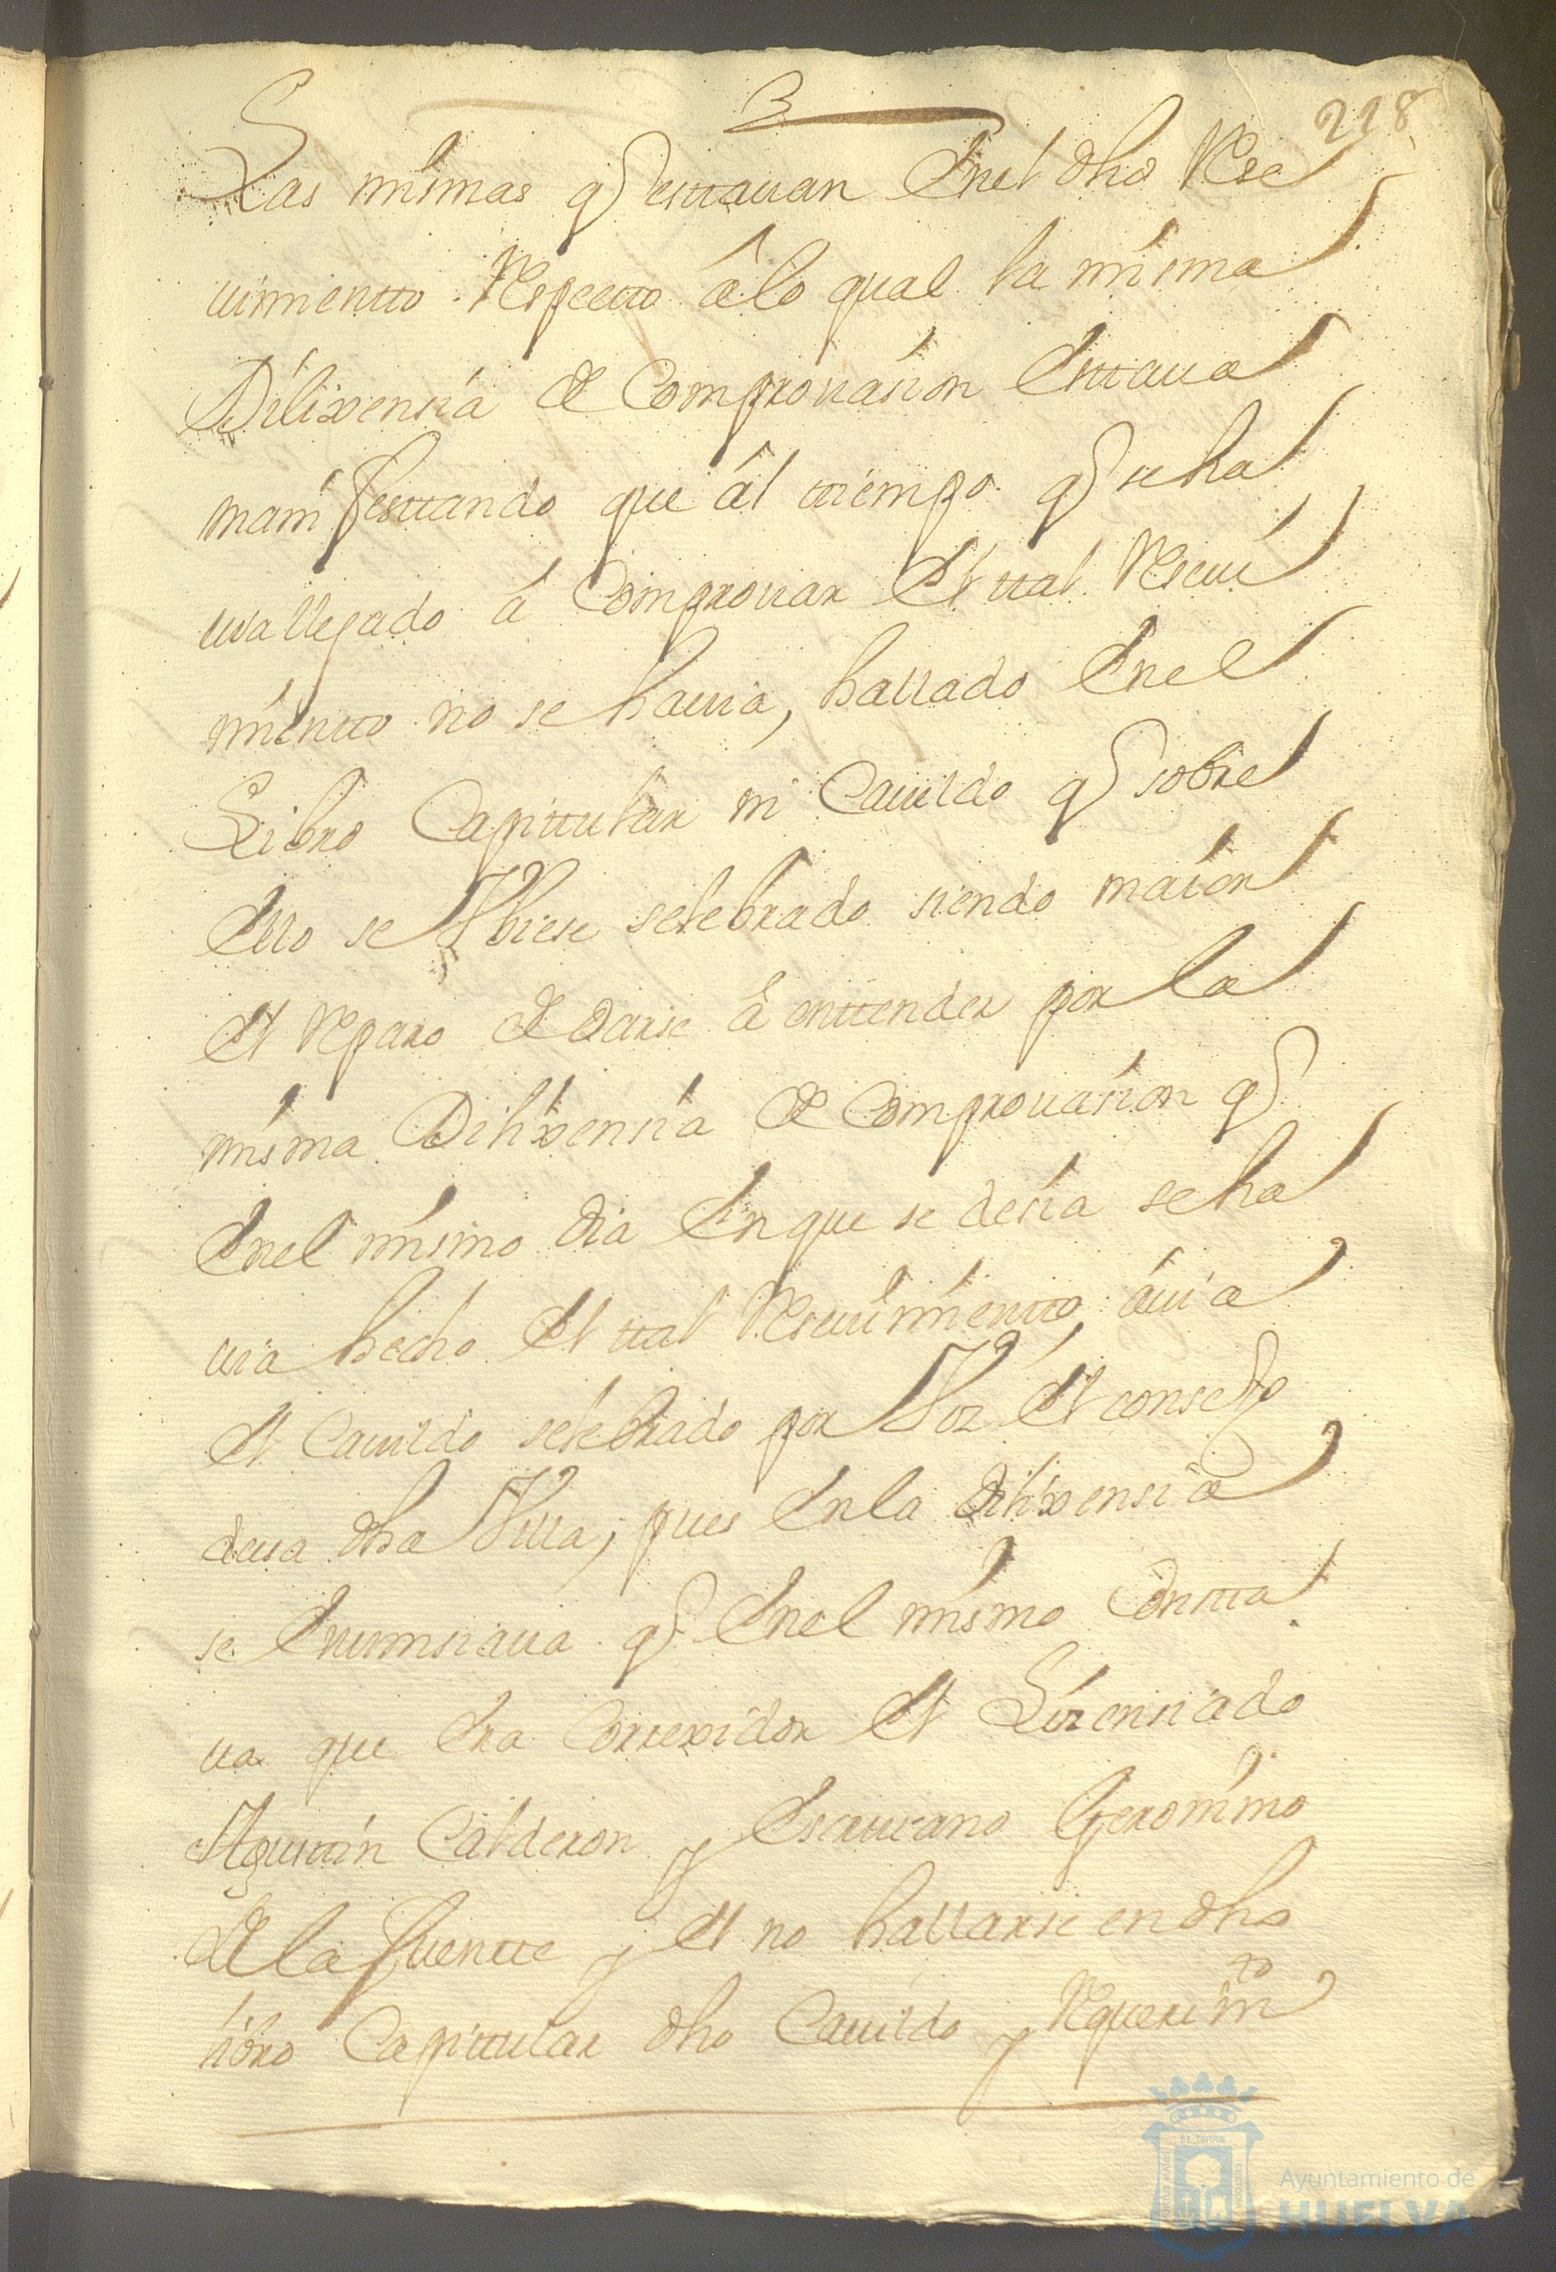 218
Las mismas q estauan Enel dho Rse
uimientto Respectto âlo qual la misma
Dilixensia de Comprouasion Esttaua
manifesttando que âl ttiempo q se ha
uia llegado â Comprouar El ttal Reseui
mientto no se hauia, hallado Enel
Libro Capittular ni Cauildo q sobre
Ello se Vbiese selebrado siendo maior
El Reparo de darse â enttender por la
misma Dilixensia de Comprouasion q
Enel mismo dia En que se desia se ha
uia hecho El ttal Reseuimientto, áuia
El Cauildo selebrado por Voz El consejo
desa dha Villa, pues En la Dilixensia
se Enunsiaua q Enel mismo Constta
ua que Era Correxidor El Lizensiado
Agusttin Calderon y Escriuano Geronimo
de la fuentte y El no hallarse en dho
libro Capittular dho Cauildo y Requerim to
Ayuntamiento de
HUELVA